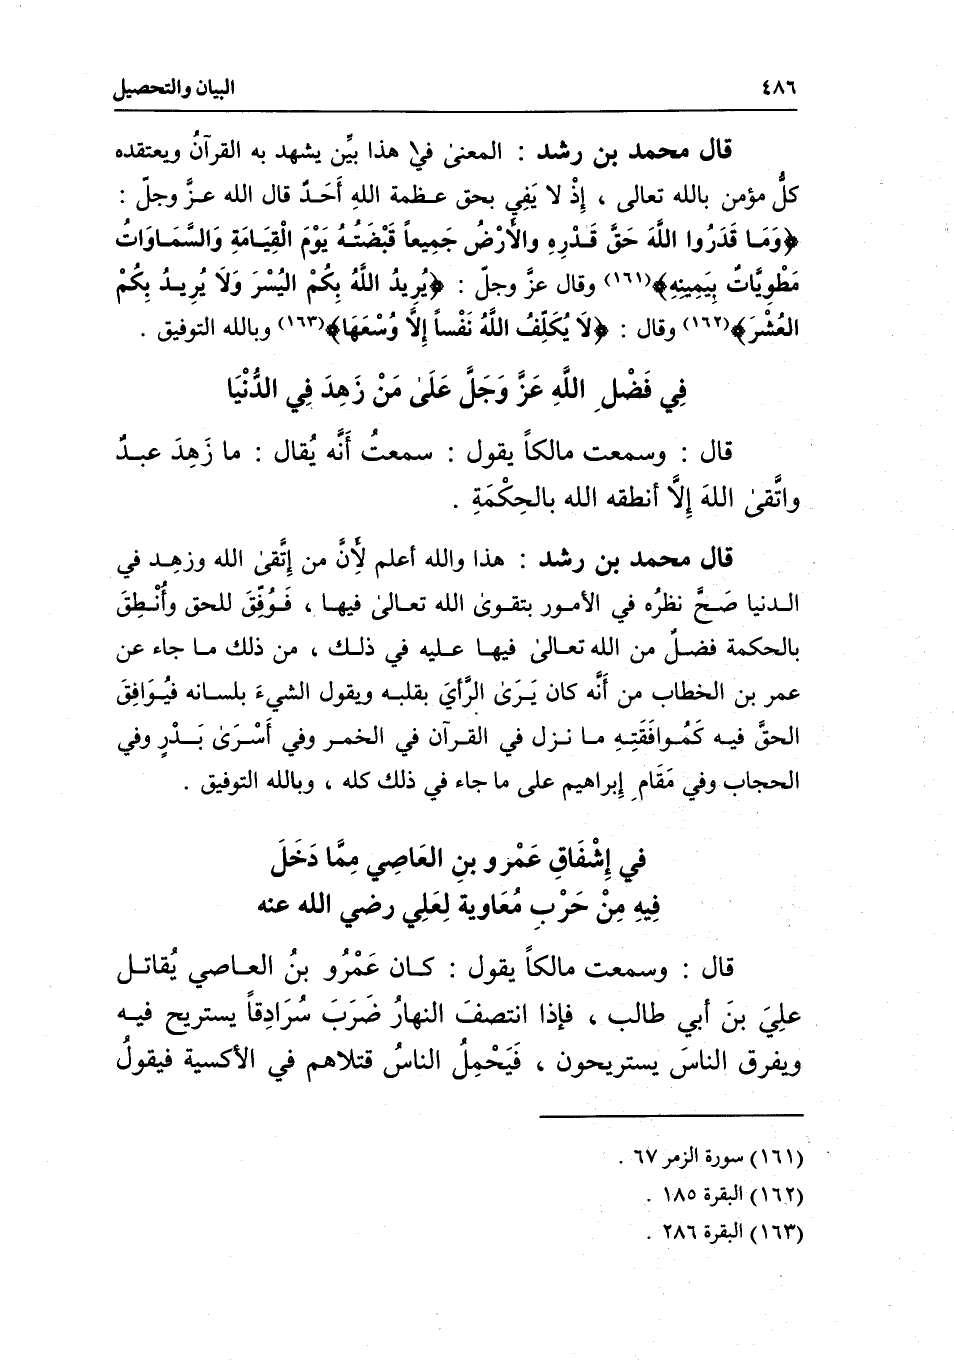 ٤٨٦ البيان والتحصيل
قال محمد بن رشد : المعنىٰ في هذا بيِّن يشهد به القرآنُ ويعتقده
كلُّ مؤمن بالله تعالى ، إِذْ لا يَفِي بحق عظمة اللهِ أَحَدٌ قال الله عزَّ وجلّ :
﴿وَمَا قَدَرُوا اللَّهَ حَقَّ قَدْرِهِ والأَرْضُ جَمِيعاً قَبْضَتُهُ يَوْمَ الْقِيَامَةِ وَالسَّمَاوَاتُ
مَطْوِيَّاتٌ بِيَمِينِهِ﴾(١٦١) وقال عزَّ وجلّ : ﴿يُرِيدُ اللَّهُ بِكُمْ اليُسْرَ وَلَا يُرِيدُ بِكُمْ
العُسْرَ﴾(١٦٢) وقال : ﴿لَا يُكَلِّفُ اللَّهُ نَفْساً إِلَّا وُسْعَهَا﴾(١٦٣) وبالله التوفيق .
فِي فَضْلِ اللَّهِ عَزَّ وَجَلَّ عَلَىٰ مَنْ زَهِدَ فِي الدُّنْيَا
قال : وسمعت مالكاً يقول : سمعتُ أَنَّه يُقال : ما زَهِدَ عبدٌ
واتَّقىٰ اللهَ إِلَّا أنطقه الله بالحِكْمَةِ .
قال محمد بن رشد : هذا والله أعلم لِأَنَّ من إِتَّقىٰ الله وزهد في
الدنيا صَحَّ نظرُه في الأمور بتقوىٰ الله تعالىٰ فيها ، فَوُفِّقَ للحق وأُنْطِقَ
بالحكمة فضلٌ من الله تعالىٰ فيها عليه في ذلك ، من ذلك ما جاء عن
عمر بن الخطاب من أَنَّه كان يَرَىٰ الرَّأيَ بقلبه ويقول الشيءَ بلسانه فيُوَافِقَ
الحقَّ فيه كَمُوافَقَتِهِ ما نزل في القرآن في الخمر وفي أَسْرَىٰ بَدْرٍ وفي
الحجاب وفي مَقَامِ إبراهيم على ما جاء في ذلك كله ، وبالله التوفيق .
في إِشْفَاقِ عَمْرو بنِ العَاصِي مِمَّا دَخَلَ
فِيهِ مِنْ حَرْبِ مُعَاوية لِعَلِي رضي الله عنه
قال : وسمعت مالكاً يقول : كان عَمْرُو بنُ العاصي يُقاتل
علِيَ بنَ أبي طالب ، فإذا انتصفَ النهارُ ضَرَبَ سُرَادِقاً يستريح فيه
ويفرق الناسَ يستريحون ، فَيَحْمِلُ الناسُ قتلاهم في الأكسية فيقولُ
(١٦١) سورة الزمر ٦٧ .
(١٦٢) البقرة ١٨٥ .
(١٦٣) البقرة ٢٨٦ .